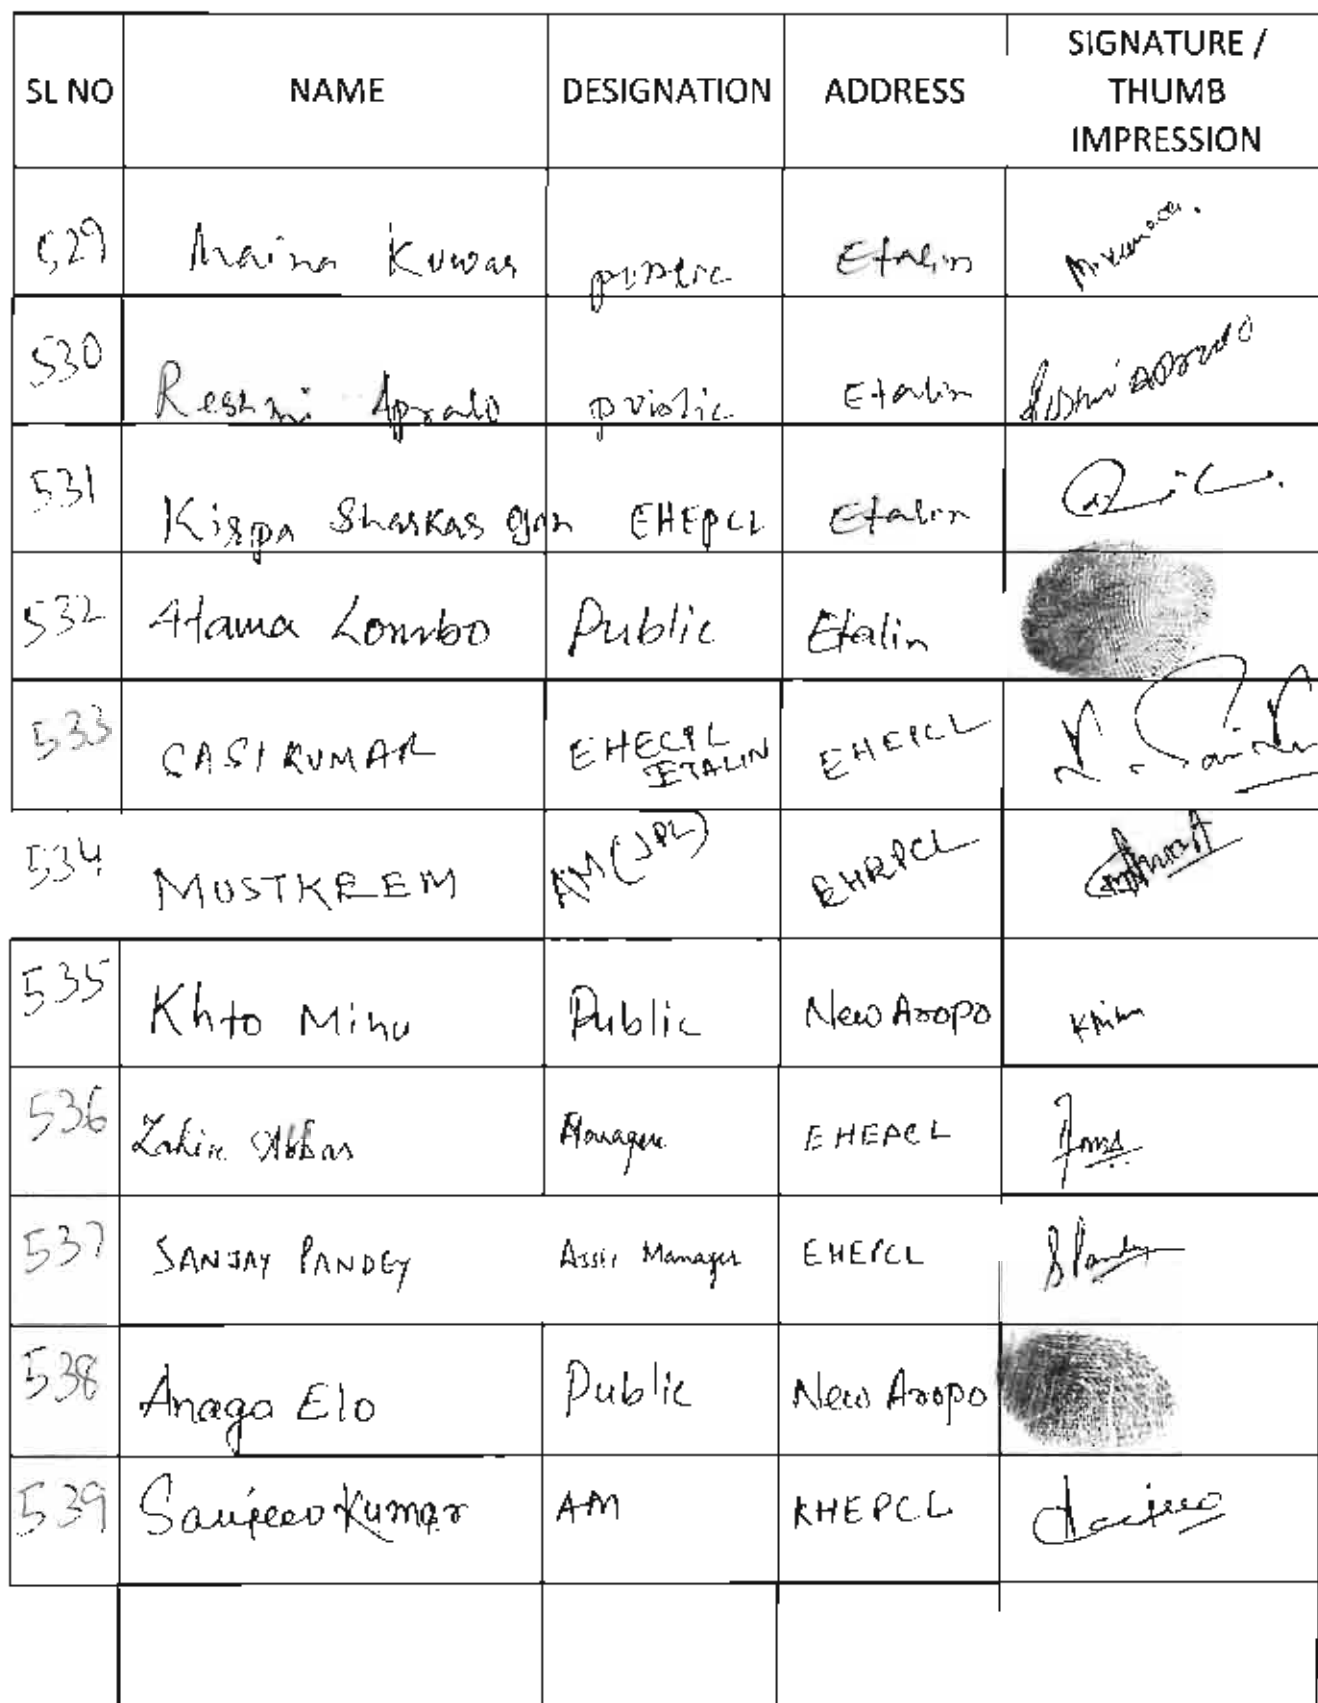 SL NO NAME DESIGNATION ADDRESS SIGNATURE / THUMB IMPRESSION
529 Maina Kuwar Etalin
530 Reshmi Apralo Etalin
531 EHEPCL Etalin
532 Atama Lombo Public Etalin
533 SASI KUMAR EHECPL ETALIN EHEPCL
534 MUSTKREEM AM (JPL) EHEPCL
535 Khto Mihu Public New Aropo
536 Zahir Abbas Manager EHEPCL
537 SANJAY PANDEY Asst Manager EHEPCL S Pandey
538 Anaga Elo Public New Aropo
539 Sanjeev Kumar AM KHEPCL